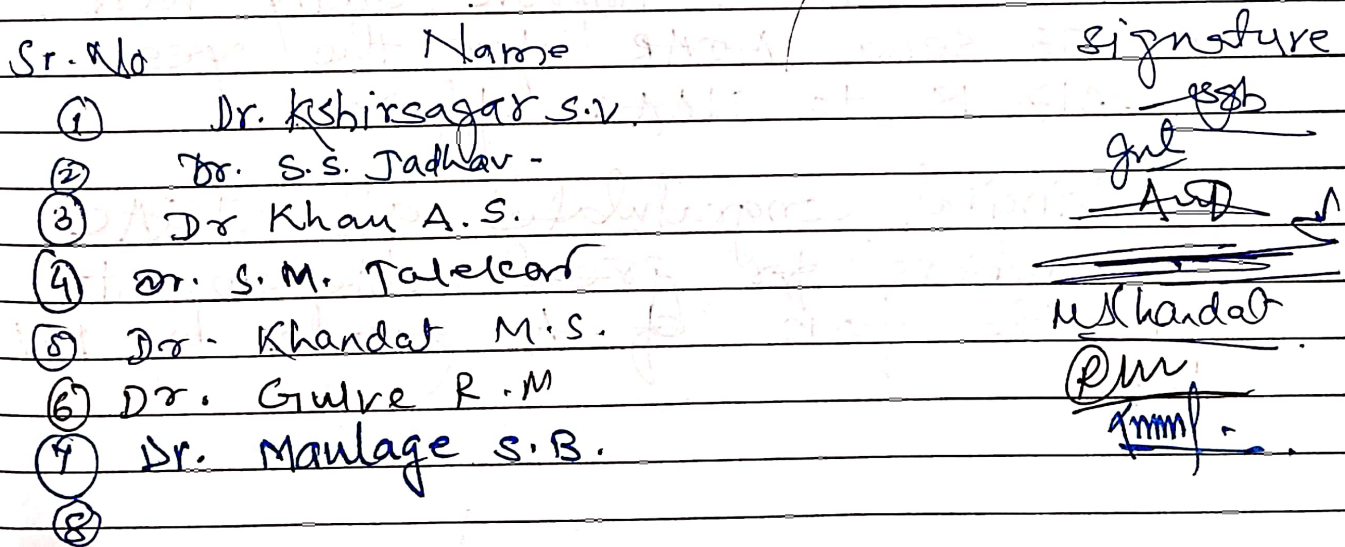 Sr. No Name signature
① Dr. Kshirsagar S.V.
② Dr. S.S. Jadhav -
③ Dr Khan A.S.
④ Dr. S.M. Talekar
⑤ Dr. Khandat M.S. MSKhandat
⑥ Dr. Gulve R.M
⑦ Dr. Maulage S.B.
⑧